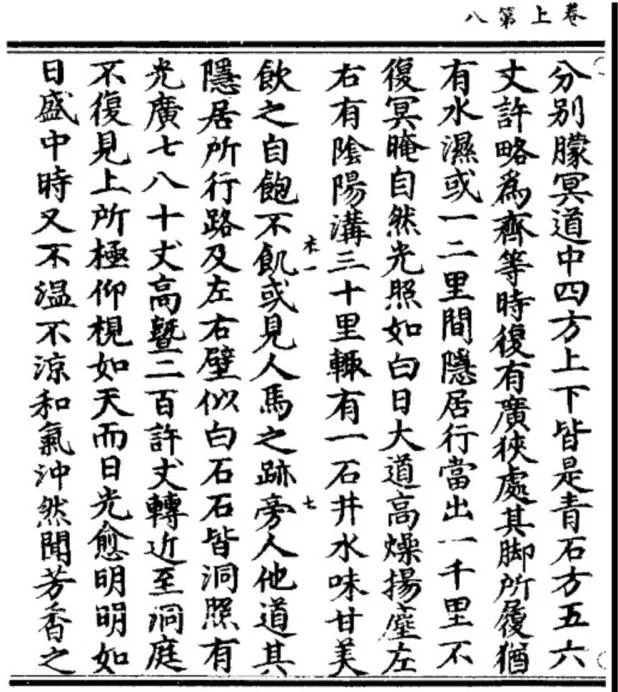 卷上第八
分別朦冥道中四方上下皆是青石方五六
丈許略爲齊等時復有廣狹處其脚所履猶
有水濕或一二里間隱居行當出一千里不
復冥晻自然光照如白日大道高燥揚塵左
右有陰陽溝三十里輒有一石井水味甘美
一 七
飲之自飽不飢或見人馬之跡旁人他道其
隱居所行路及左右壁似白石石皆洞照有
光廣七八十丈高暨二百許丈轉近至洞庭
不復見上所極仰視如天而日光愈明明如
日盛中時又不溫不涼和氣沖然聞芳香之